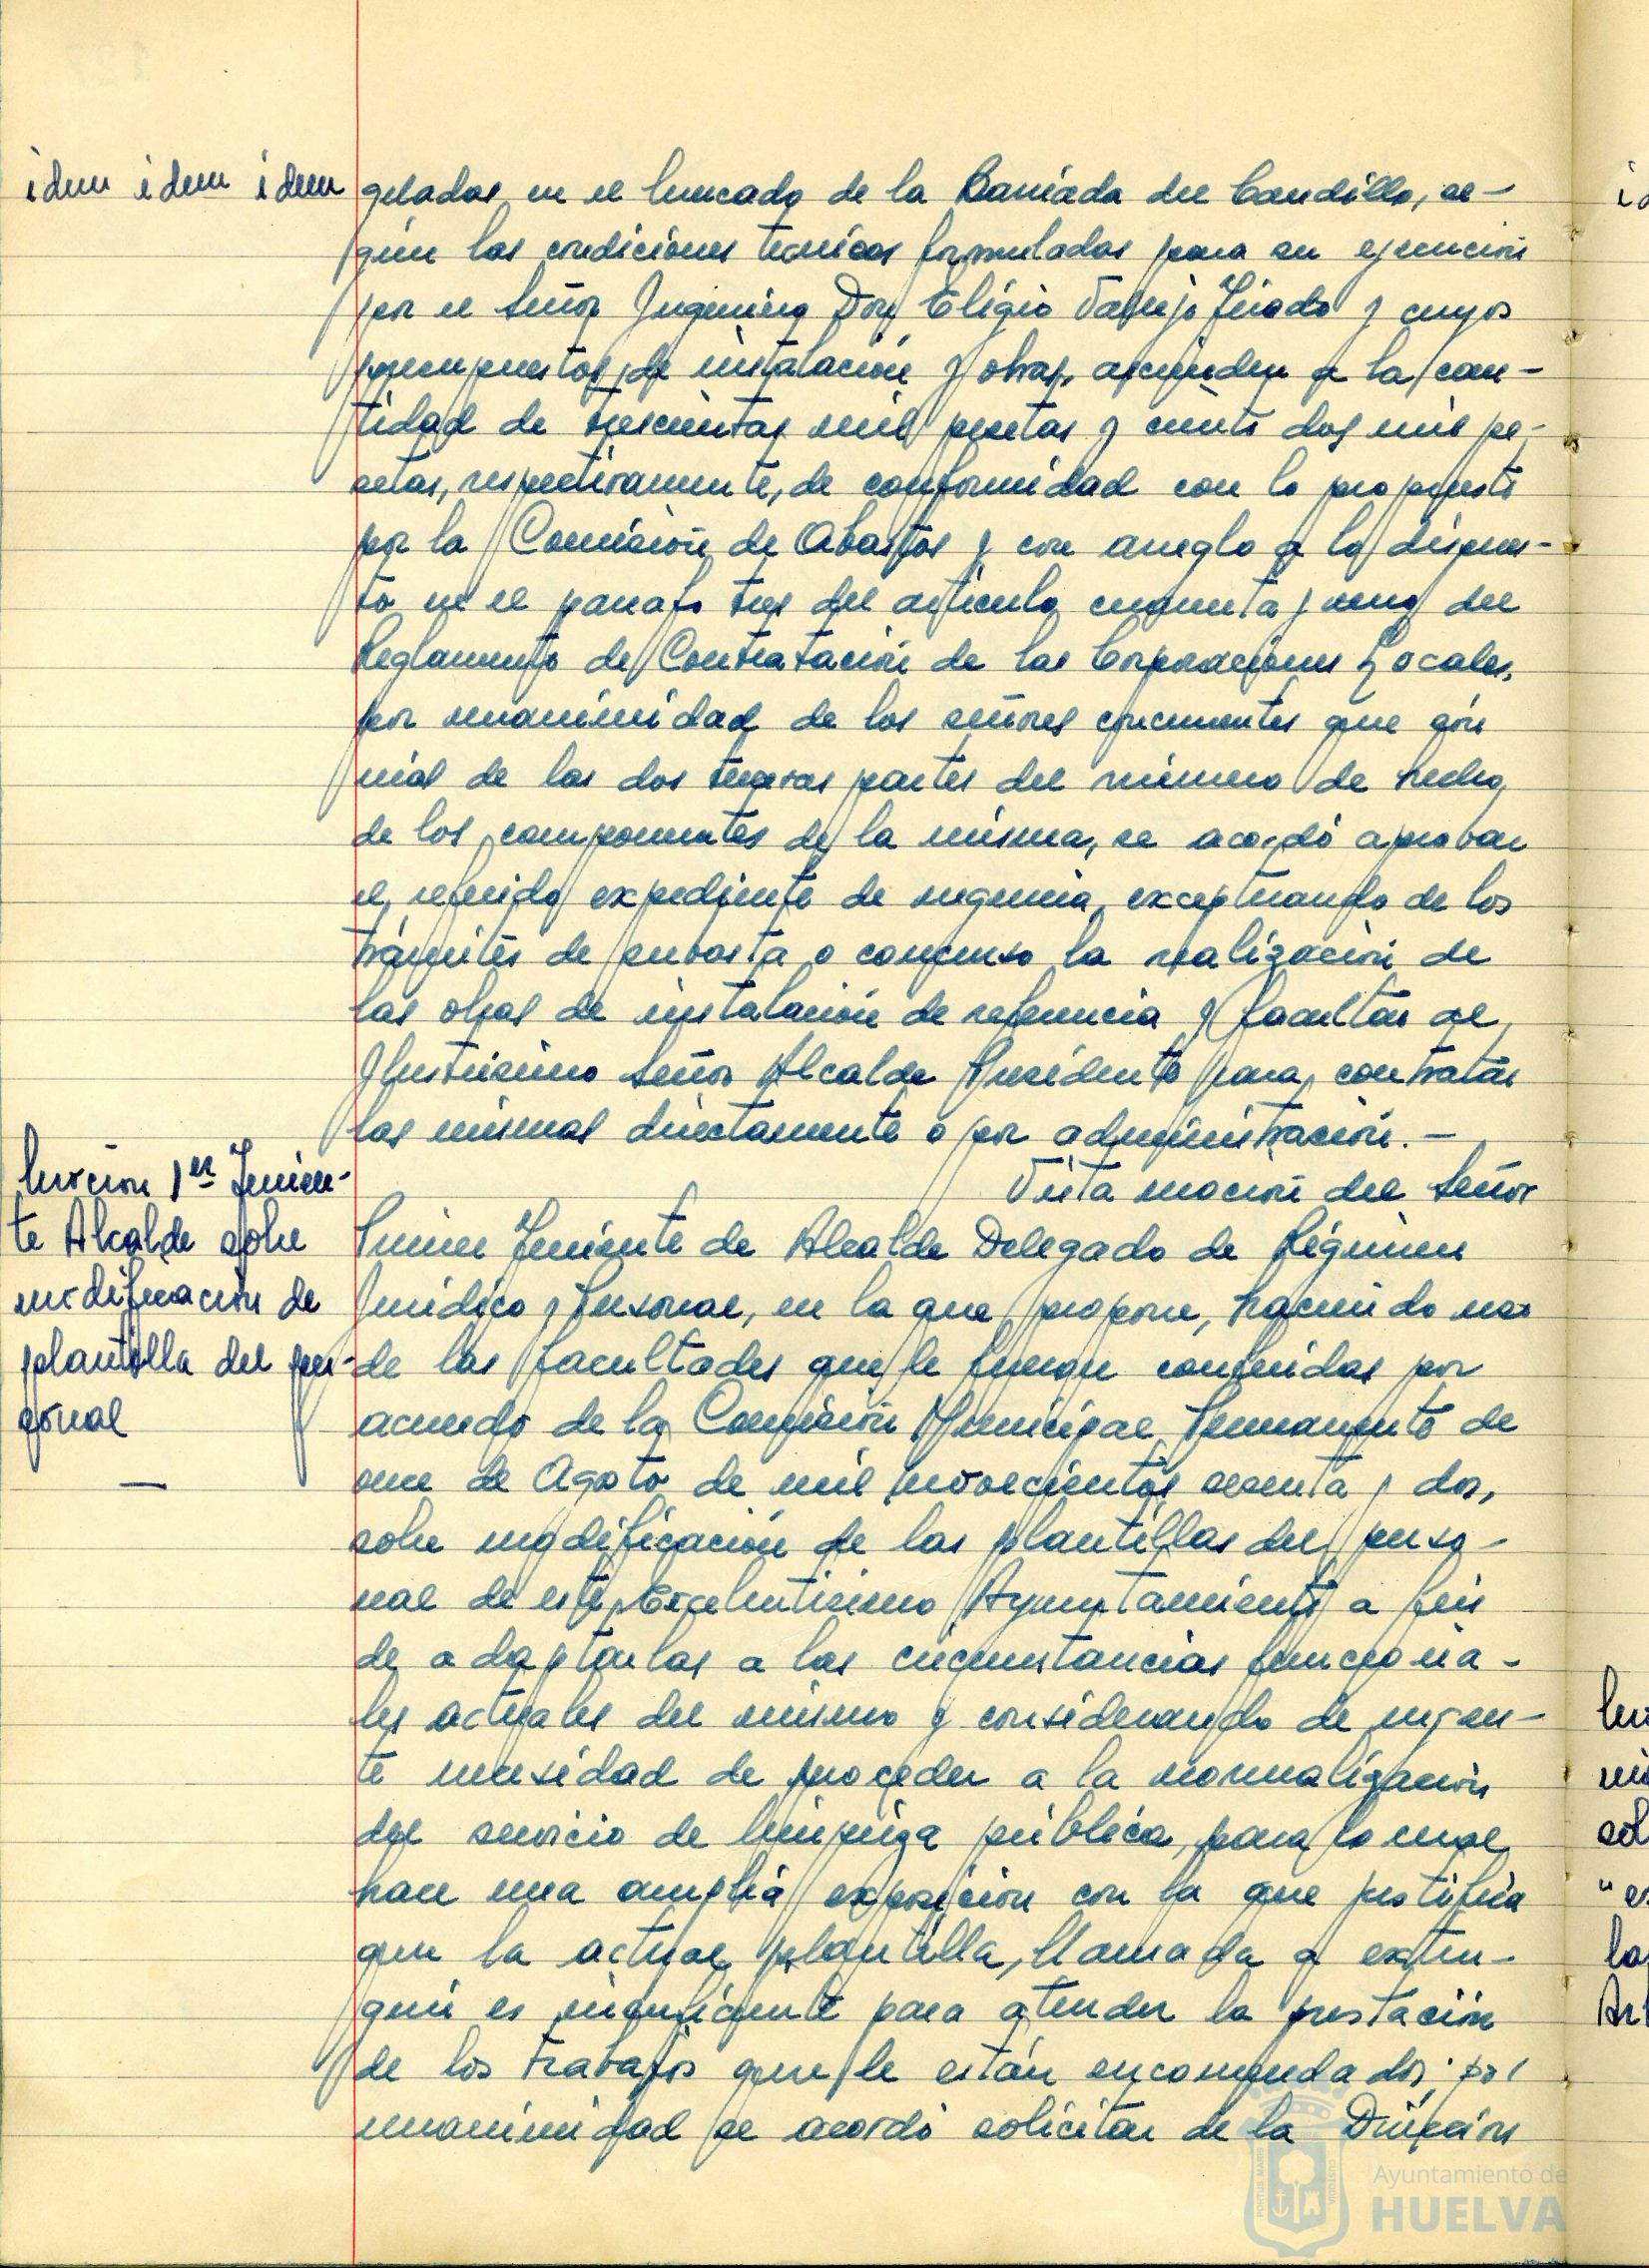 idem idem idem
gelados en el Mercado de la Barriada del Caudillo, se-
gún las condiciones tecnicas formuladas para su ejecución
por el Señor Ingeniero Don Eligio Tirado y cuyos
presupuestos de instalación y obras, ascienden a la can-
tidad de trescientas mil pesetas y ciento dos mil pe-
setas, respectivamente, de conformidad con lo propuesto
por la Comisión de Abastos y con arreglo a lo dispues-
to en el parrafo tres del articulo cuarenta y uno del
Reglamento de Contratación de las Corporaciones Locales,
por unanimidad de los señores concurrentes que son
más de las dos terceras partes del número de hecho
de los componentes de la misma, se acordó aprobar
el referido expediente de urgencia, exceptuando de los
trámites de subasta o concurso la realización de
las obras de instalación de referencia y facultar al
Ilustrisimo Señor Alcalde Presidente para contratar
las mismas directamente o por administración.-
Moción 1er Tenien-
te Alcalde sobre
modificación de
plantilla del per-
sonal
Vista moción del Señor
Primer Teniente de Alcalde Delegado de Régimen
Jurídico y Personal, en la que propone, haciendo uso
de las facultades que le fueron conferidas por
acuerdo de la Comisión Municipal Permanente de
once de Agosto de mil novecientos sesenta y dos,
sobre modificación de las plantillas del perso-
nal de este Excelentisimo Ayuntamiento a fin
de adaptarlas a las circunstancias funciona-
les actuales del mismo y considerando de urgen-
te necesidad de proceder a la normalización
del servicio de limpieza pública, para lo cual
hace una amplia exposición con la que justifica
que la actual plantilla, llamada a extin-
guir es insuficiente para atender la prestación
de los trabajos que le están encomendados, por
unanimidad se acordó solicitar de la Dirección
Ayuntamiento de
HUELVA